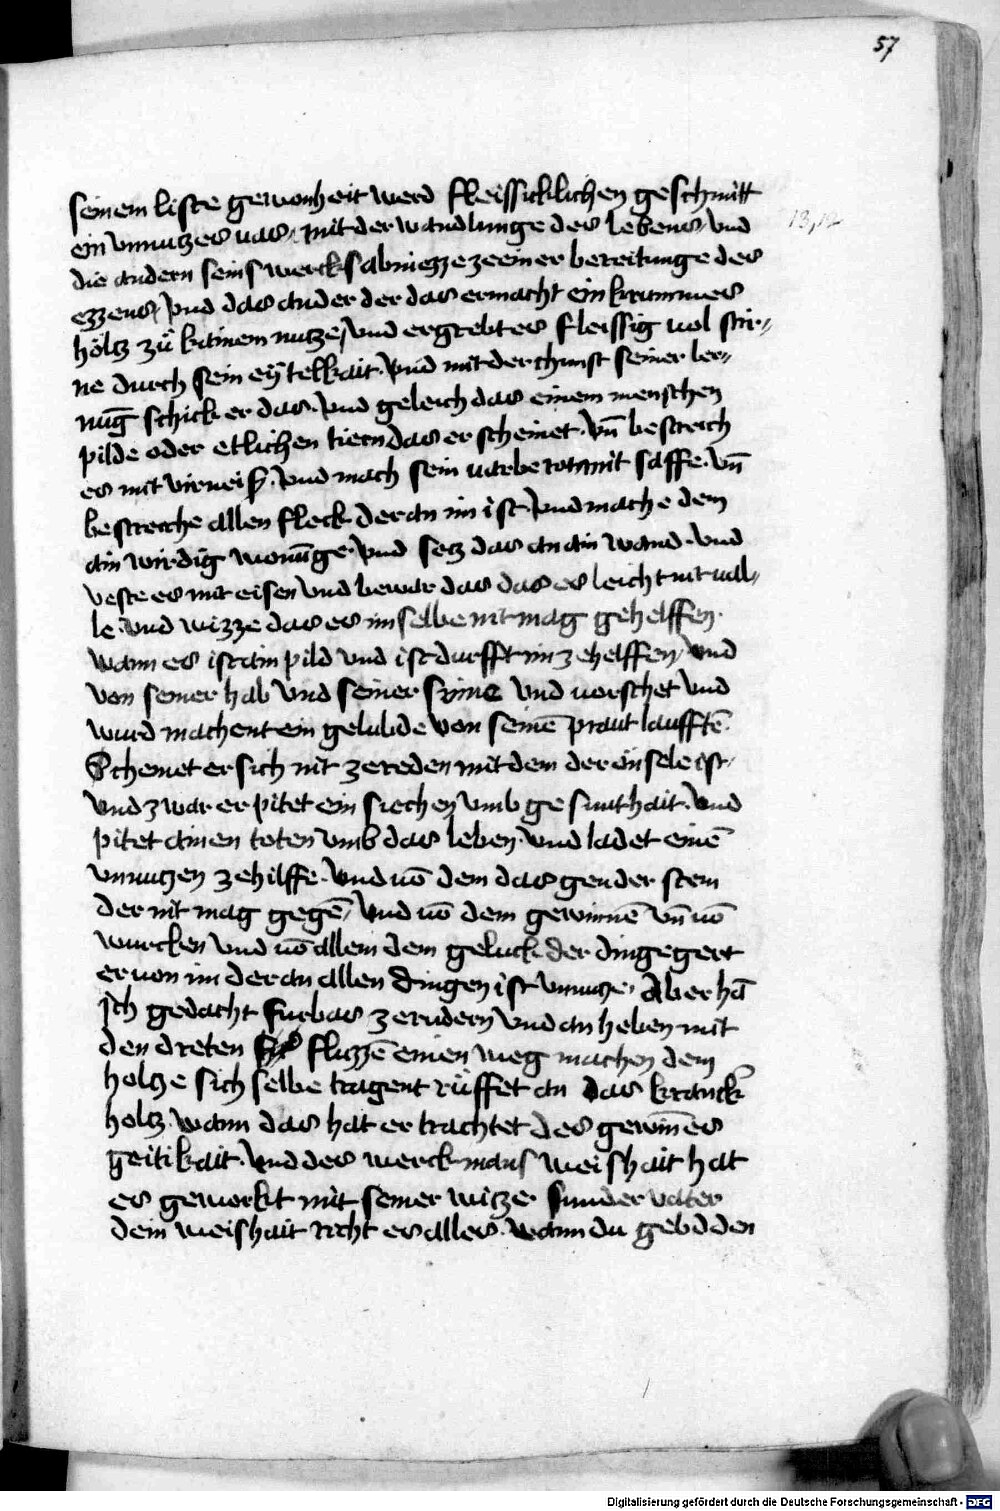 57
seinem liste gewonheit werd fleissicklichen geschnitt
13,12
ein vnnuczes uas, mit der wandlunge des lebens, vnd
die andern seins wercks abniezze ze einer bereitunge des
ezzens, vnd das ander der das ermacht ein krummes
hölcz zů kainem nutze, vnd ergrebt es fleissig uol stir,,
ne durch sein eÿtelkait. vnd mit der chunst seiner ler,,
nug̅ schick er das. vnd geleich das einem menschen
pilde oder etlichen tiern das er scheinet. vn̅ bestreich
es mit virneiß. vnd mach sein uarbe rot mit saffe. vn̅
bestreiche allen fleck der an im ist. vnd mache dem
ain wirdig wonūge. vnd secz das an ain wand. vnd
veste es mit eisen vnd bewar das das es leicht nit ual,,
le. vnd wizze das es im selbe nit mag gehelffen.
wann es ist ain pild vnd ist durfft im zehelffen, vnd
von seiner hab vnd seiner sune vnd uorschet vnd
wurd machent ein gelubde von seinē praut laufftē.
Schemet er sich nit zereden mit dem der ön sele ist,
vnd zwar er pitet ein siechen vmb gesunthait. vnd
pitet ainen toten vmb das leben. vnd ladet einē
vnnuczen zehilffe. vnd uō dem das gender stem
der nit mag gegē, vnd uō dem gewinnē vn̅ uō
wurcken vnd uō allem dem geluck der ding gegert
er uon im der an allen dingen ist vnnucze. Aber hā
ich gedacht furbas zerudern vnd an heben mit
den dreten fluzzē einen weg machen dem
holcze sich selbe tragent rüffet an das kranck
holcz. wann das hat er trachtet des gewin̅es
geitikait. vnd des werckmans weishait hat
es geworkt mit seiner wicze sunder vater
dein weishait richt es alles. wann du gebd den
Digitalisierung gefördert durch die Deutsche Forschungsgemeinschaft - DFG